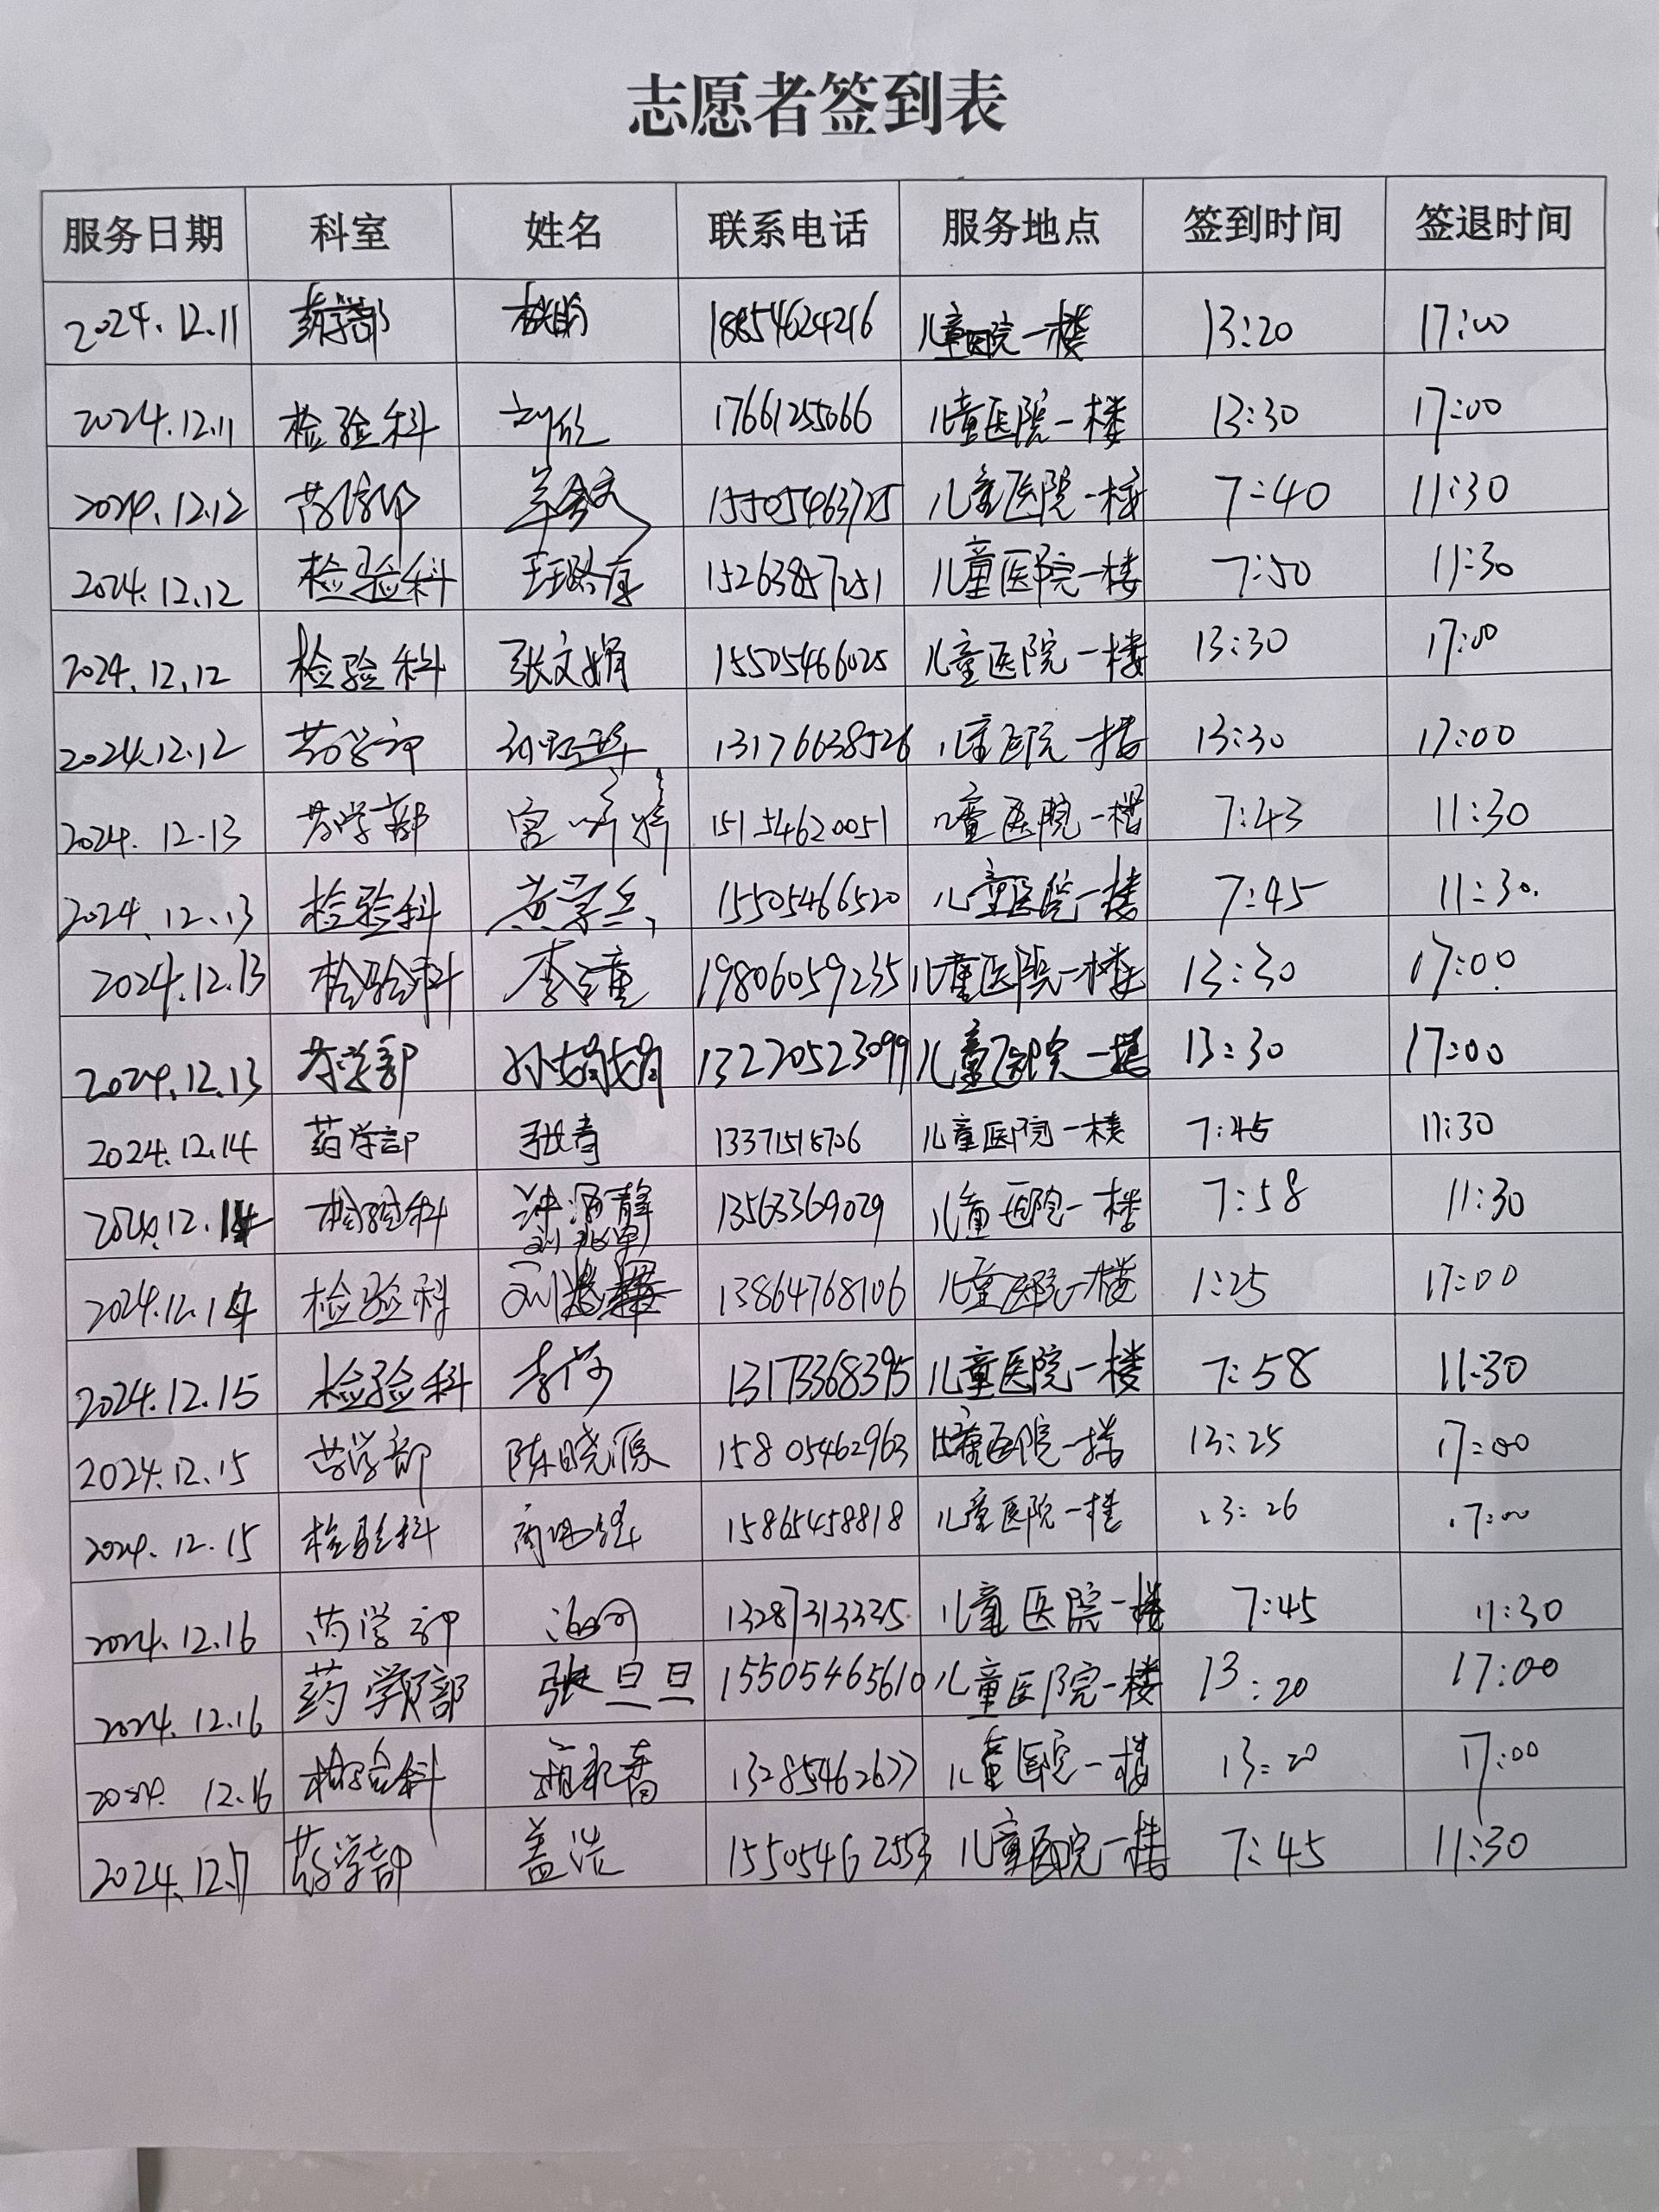 志愿者签到表
服务日期 科室 姓名 联系电话 服务地点 签到时间 签退时间
2024.12.11 药学部 18854624216 儿童医院一楼 13:20 17:00
2024.12.11 检验科 刘欣 17661255066 儿童医院一楼 13:30 17:00
2024.12.12 药学部 15505463725 儿童医院一楼 7:40 11:30
2024.12.12 检验科 15263857251 儿童医院一楼 7:50 11:30
2024.12.12 检验科 张文娟 15505466025 儿童医院一楼 13:30 17:00
2024.12.12 药学部 13176638526 儿童医院一楼 13:30 17:00
2024.12.13 药学部 宫婷婷 15154620051 儿童医院一楼 7:43 11:30
2024.12.13 检验科 黄学兵 15505466520 儿童医院一楼 7:45 11:30.
2024.12.13 检验科 19806059235 儿童医院一楼 13:30 17:00
2024.12.13 药学部 孙娟娟 13220523099 儿童医院一楼 13:30 17:00
2024.12.14 药学部 张青 13371518706 儿童医院一楼 7:45 11:30
2024.12.14 检验科 13563369029 儿童医院一楼 7:58 11:30
2024.12.14 检验科 13864768106 儿童医院一楼 1:25 17:00
2024.12.15 检验科 李莎 13173368395 儿童医院一楼 7:58 11:30
2024.12.15 药学部 陈晓源 15805462963 儿童医院一楼 13:25 17:00
2024.12.15 检验科 15865458818 儿童医院一楼 13:26 17:00
2024.12.16 药学部 13287313335 儿童医院一楼 7:45 11:30
2024.12.16 药学部 张旦旦 15505465610 儿童医院一楼 13:20 17:00
2024.12.16 检验科 13285462677 儿童医院一楼 13:20 17:00
2024.12.17 药学部 盖浩 15505462553 儿童医院一楼 7:45 11:30